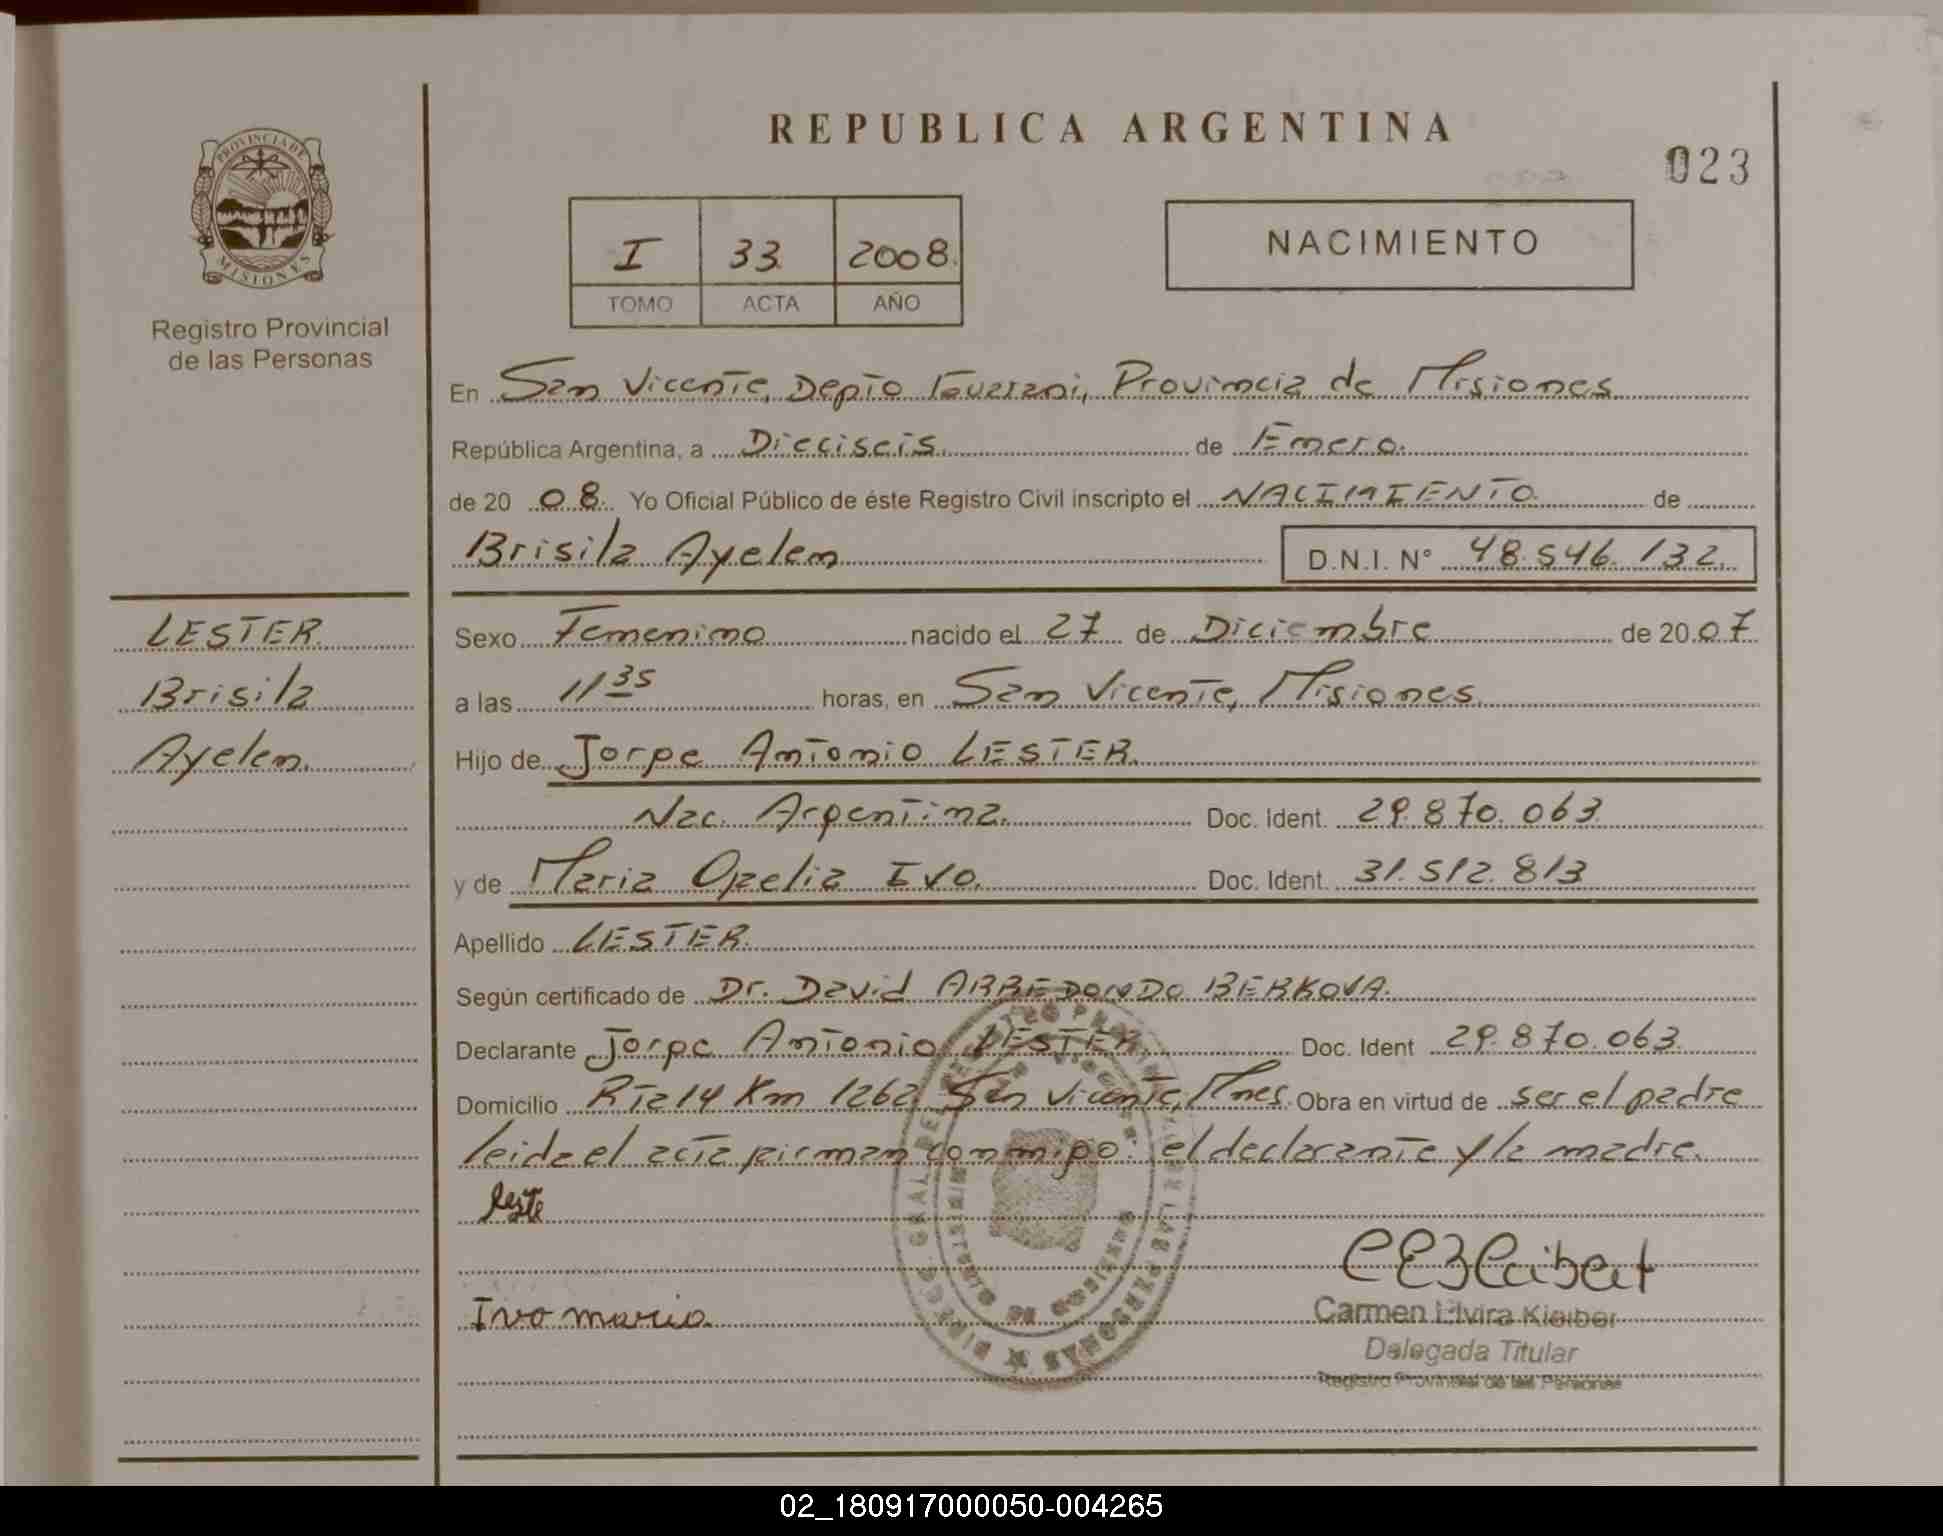 REPUBLICA ARGENTINA
023
PROVINCIA DE
MISIONES
Registro Provincial
de las Personas
I 33 2008
TOMO ACTA AÑO
NACIMIENTO
En San Vicente, Depto Guarani, Provincia de Misiones
República Argentina, a Dieciseis. de Enero.
de 20 08. Yo Oficial Público de éste Registro Civil inscripto el NACIMIENTO de
Brisila Ayelen D.N.I. N° 48.546.132.
LESTER
Brisila
Ayelen.
Sexo Femenino nacido el 27 de Diciembre de 20 07
a las 11 35 horas, en San Vicente, Misiones.
Hijo de Jorge Antonio LESTER.
Nac. Argentina. Doc. Ident. 29.870.063
y de Maria Ofelia IVO. Doc. Ident. 31.512.813
Apellido LESTER.
Según certificado de Dr. David ARREDONDO BERKOVA.
Declarante Jorge Antonio LESTER. Doc. Ident 29.870.063
Domicilio Rta 14 Km 1262 San Vicente, Mnes. Obra en virtud de ser el padre
leida el acta firman conmigo el declarante y la madre.
Leste
Ivo maria
Carmen Elvira Kleiber
Delegada Titular
Registro Provincial de las Personas
02_180917000050-004265